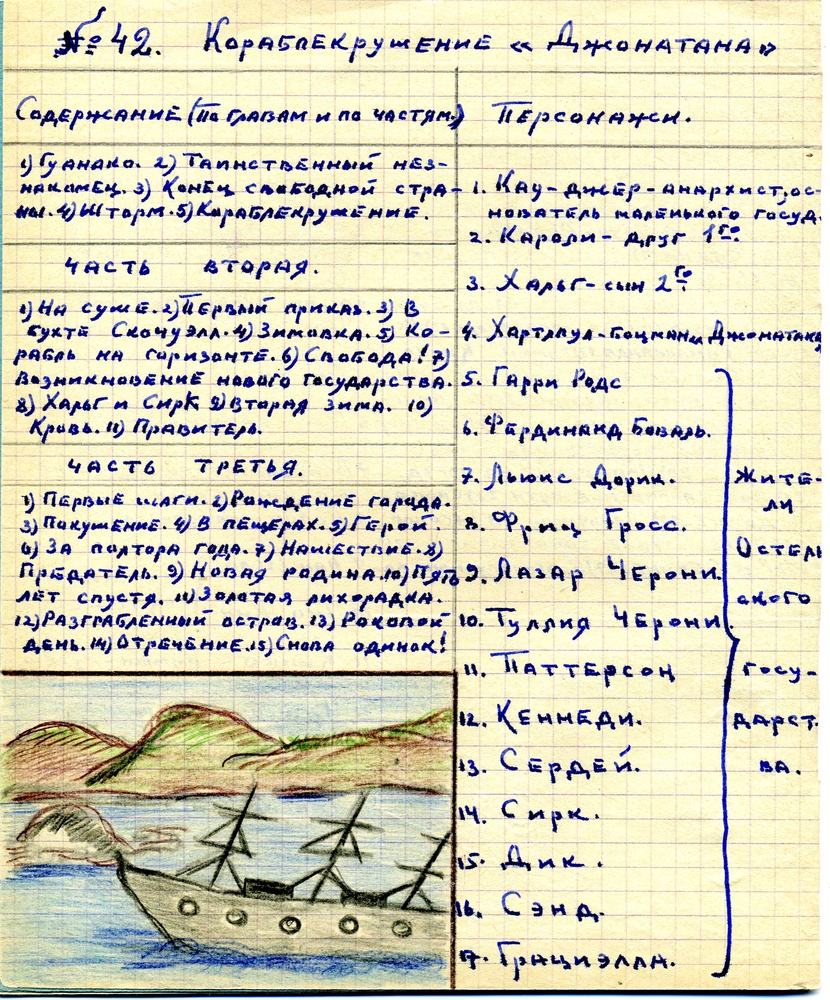 № 42. Кораблекрушение «Джонатана»
Содержание (по главам и по частям.)
1) Гуанако. 2) Таинственный нез-
накомец. 3) Конец свободной стра-
ны. 4) Шторм. 5) Кораблекружение.
Часть вторая.
1) На суше. 2) Первый приказ. 3) В
бухте Скочуэлл. 4) Зимовка. 5) Ко-
рабль на горизонте. 6) Свобода! 7)
Возникновение нового государства.
8) Хальг и Сирк 9) Вторая зима. 10)
Кровь. 11) Правитель.
Часть третья.
1) Первые шаги. 2) Рождение города.
3) Покушение. 4) В пещерах. 5) Герой.
6) За полтора года. 7) Нашествие. 8)
Предатель. 9) Новая родина. 10) Пять
лет спустя. 11) Золотая лихорадка.
12) Разграбленный остров. 13) Роковой
день. 14) Отречение. 15) Снова одинок!
Персонажи.
1. Кау-джер-анархист, ос-
нователь маленького госуд.
2. Кароли- друг 1го.
3. Хальг- сын 2го.
4. Хартлпул-боцман „Джонатана"
5. Гарри Родс
6. Фердинанд Боваль.
7. Льюис Дорик.
8. Фриц Гросс.
9. Лазар Черони.
10. Туллия Черони.
11. Паттерсон
12. Кеннеди.
13. Сердей.
14. Сирк.
15. Дик.
16. Сэнд.
17. Грациэлла.
Жите-
ли
Остель
ского
госу-
дарст.
ва.